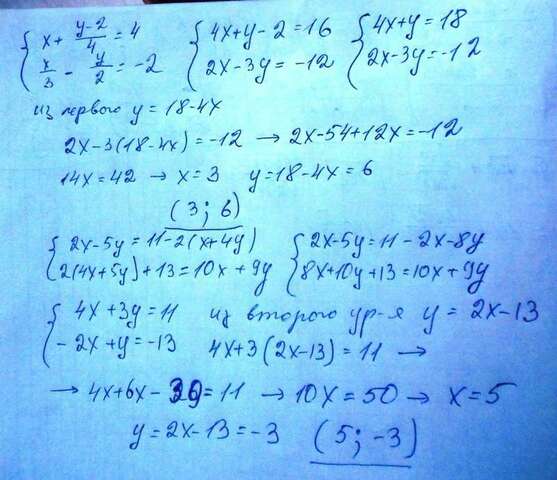 { x + (y-2)/4 = 4   { 4x+y-2=16   { 4x+y=18
{ x/3 - y/2 = -2   { 2x-3y=-12   { 2x-3y=-12
из первого y=18-4x
2x-3(18-4x)=-12 → 2x-54+12x=-12
14x=42 → x=3   y=18-4x=6
(3; 6)
{ 2x-5y=11-2(x+4y)   { 2x-5y=11-2x-8y
{ 2(4x+5y)+13=10x+9y   { 8x+10y+13=10x+9y
{ 4x+3y=11   из второго ур-я y=2x-13
{ -2x+y=-13   4x+3(2x-13)=11 →
→ 4x+6x-39=11 → 10x=50 → x=5
y=2x-13=-3   (5; -3)